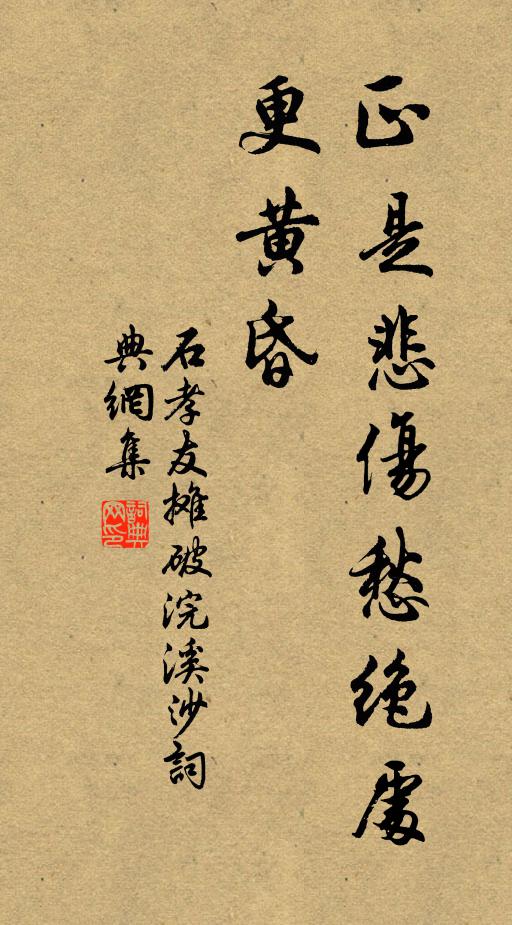 正是悲傷愁絕處
更黃昏
石孝友攤破浣溪沙詞
典網集
詞典网印